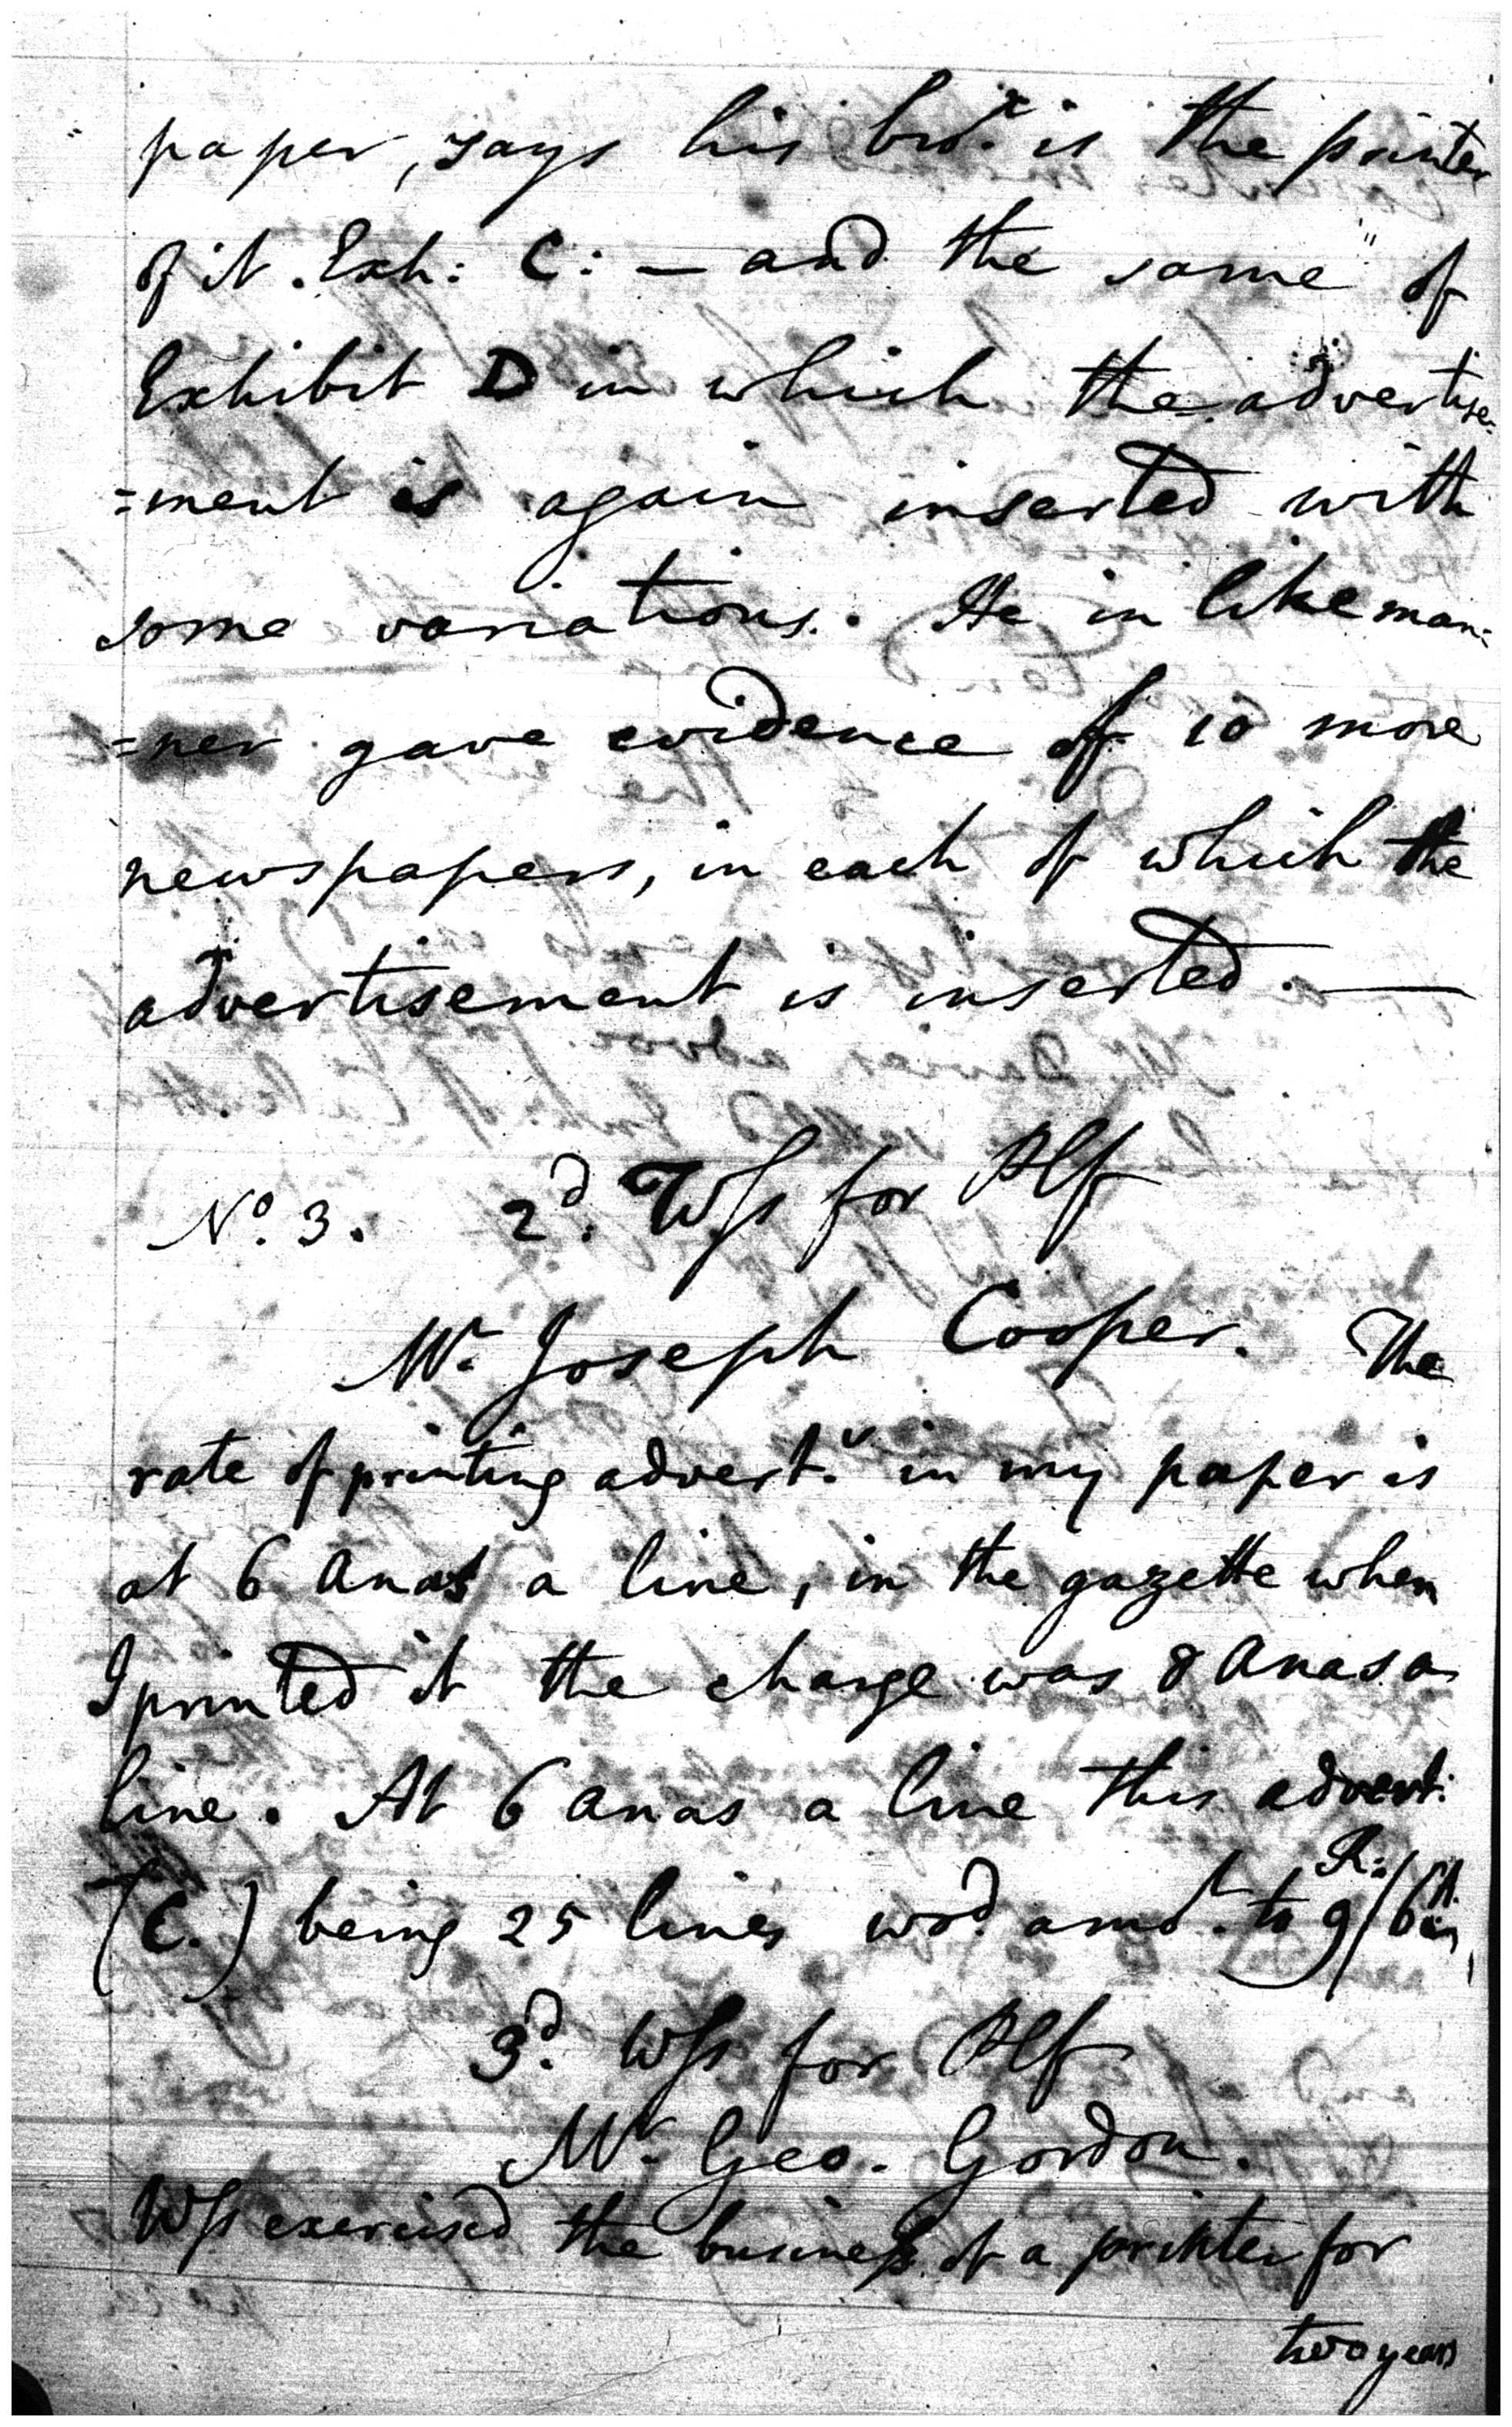 paper, says his bro.r is the printer
of it. Exh: C: — and the same of
Exhibit D in which the advertise-
=ment is again inserted with
some variations. He in like man=
=ner gave evidence of 10 more
newspapers, in each of which the
advertisement is inserted. —
No. 3. 2d. Wſs for Plf
Mr. Joseph Cooper. The
rate of printing advert.s in my paper is
at 6 anas a line, in the gazette when
I printed it the charge was 8 anas a
line. At 6 anas a line this advert:
(C.) being 25 lines wod. amt. to R: 9/6 A.
3d. Wſs for Plf
Mr. Geo. Gordon.
Wſs exercised the busineſs of a printer for
two years